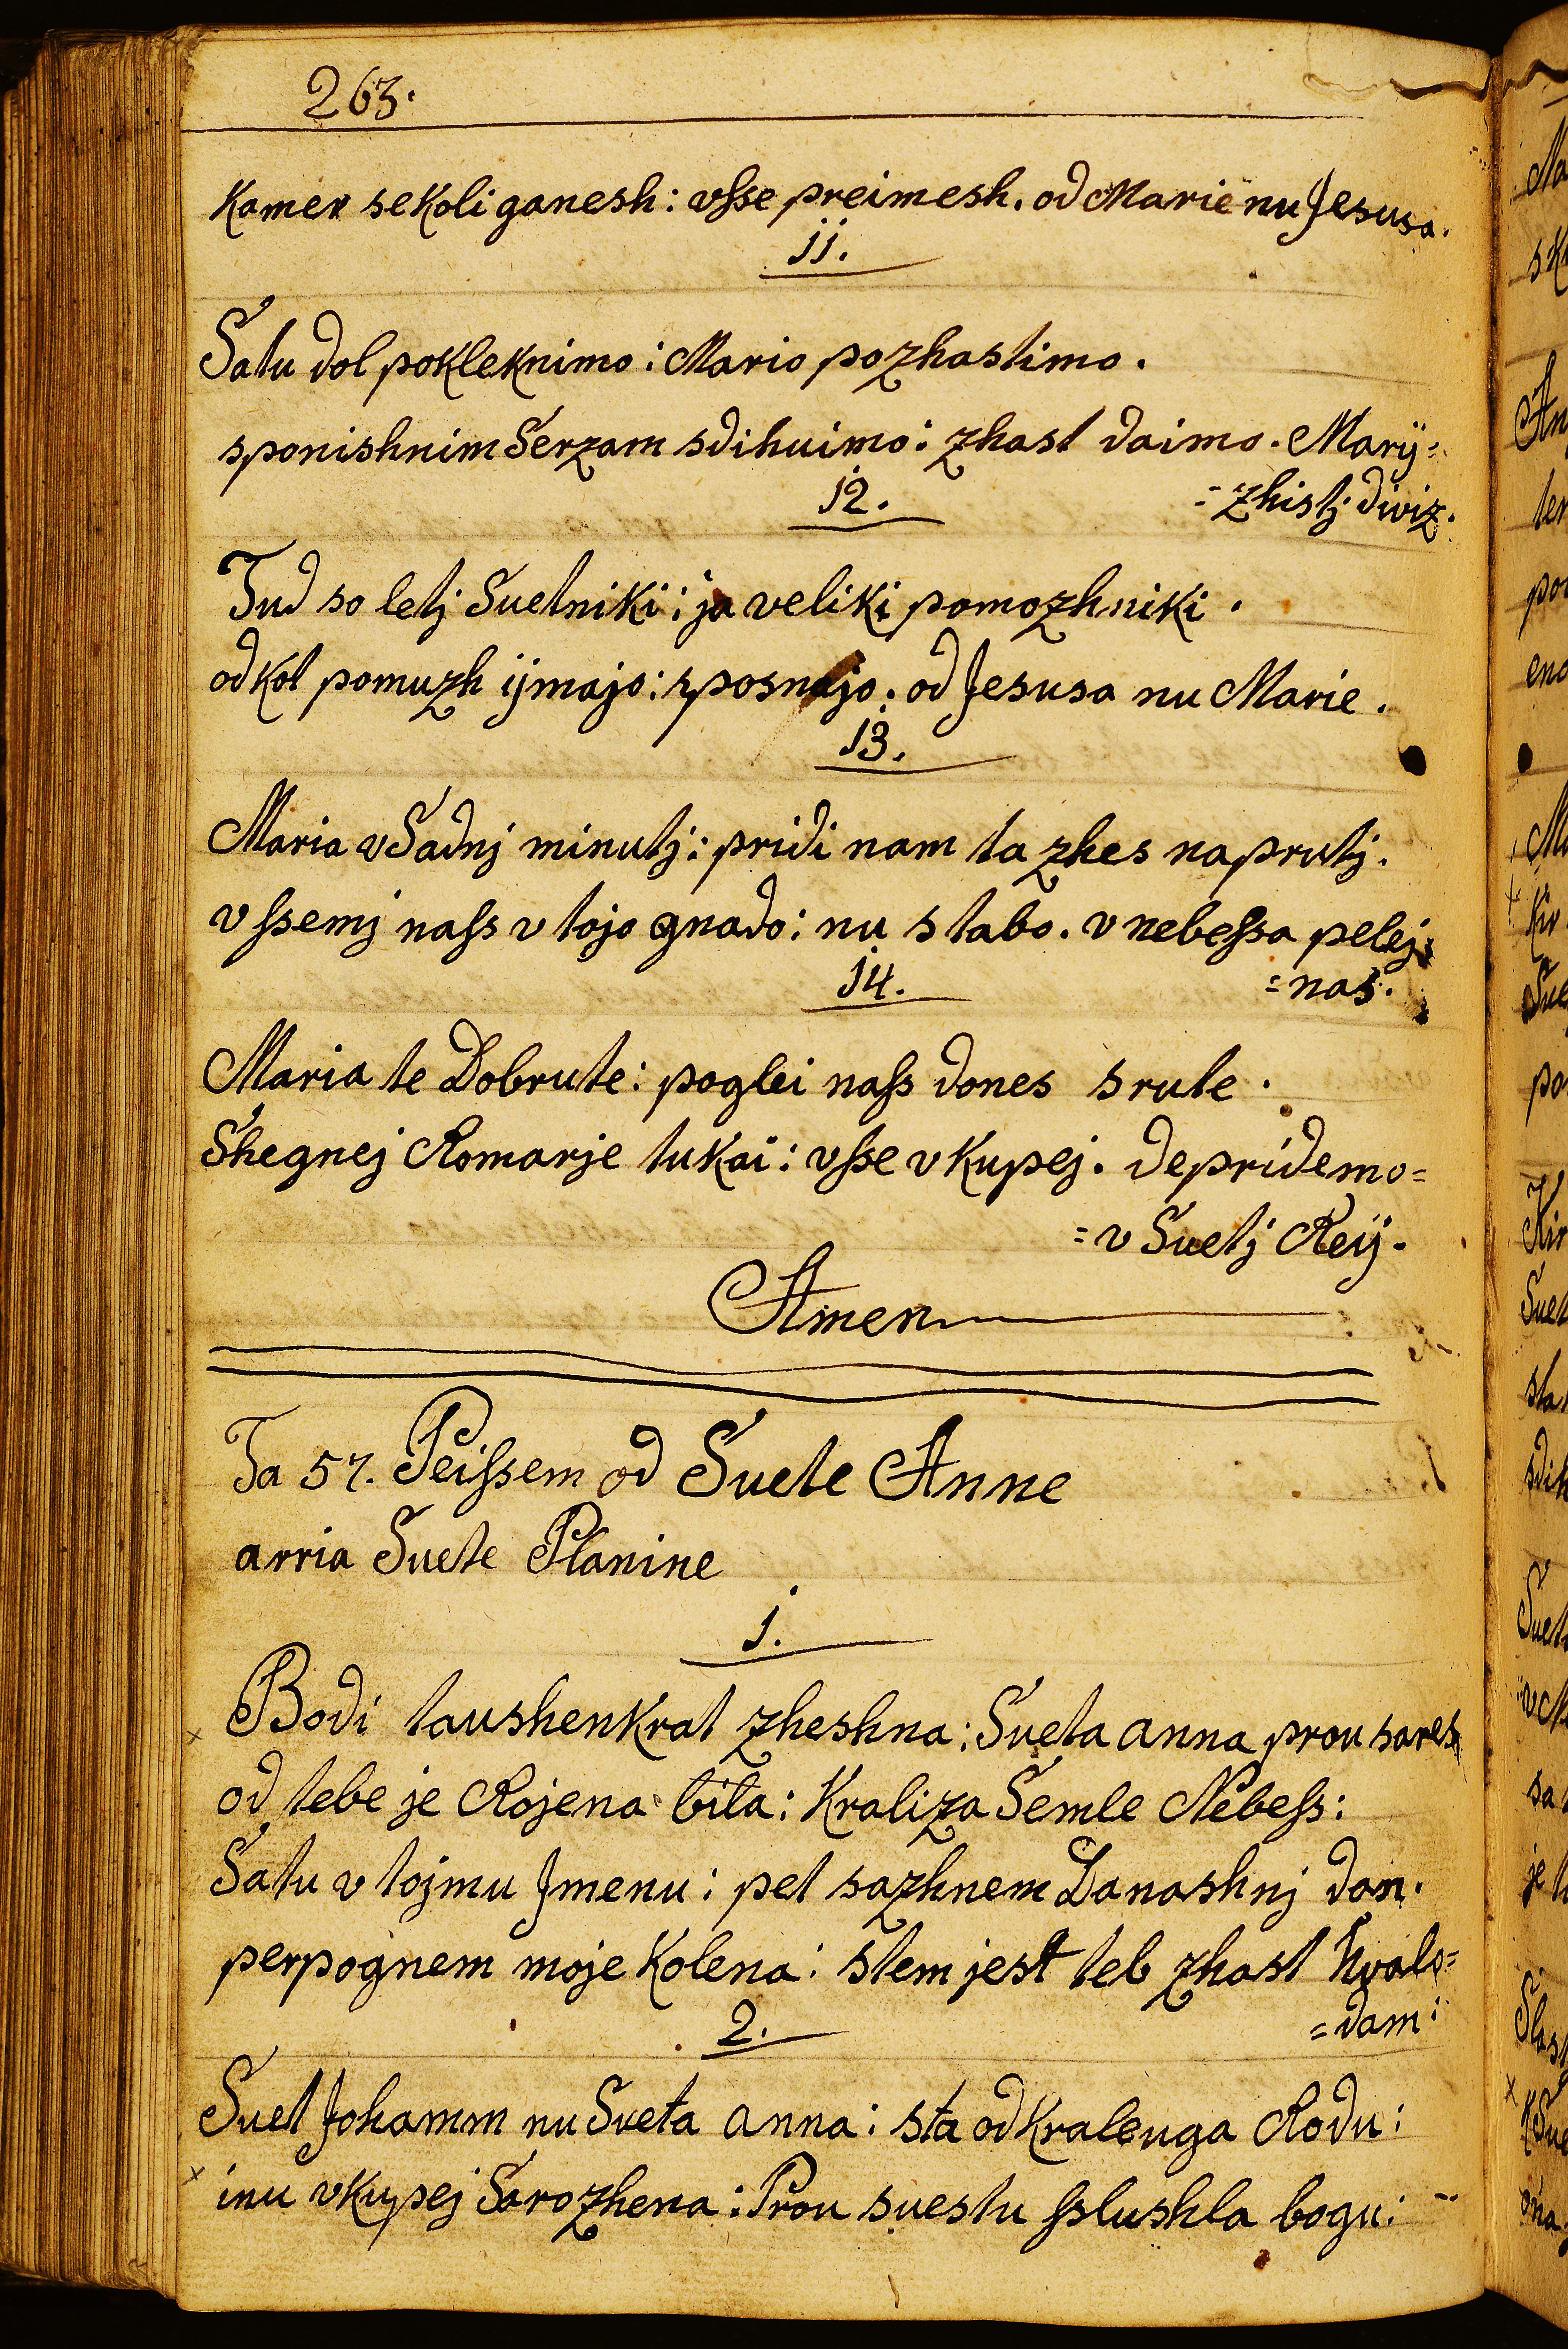 263.
Kamer se Koli ganesh: vsse preimesh. od Marie nu Jesusa.
11.
Satu dol pokleknimo: Mario pozhastimo.
sponishnim Serzam sdihuimo: zhast daimo. Marij=
=zhistj diviz.
12.
Tud so letj Suetniki: ja veliki pomozhniki.
od Kot pomuzh ijmajo: sposnajo: od Jesusa nu Marie.
13.
Maria v Sadnj minutj: pridi nam ta zhes naprutj.
vssemj nass v tojo gnado: nu s tabo. v nebessa pelej
=nas.
14.
Maria te Dobrute: poglei nass dones s rute.
Shegnej Romarje tukai: vsse v Kupej. de pridemo=
=v Suetj Reij.
Amen
Ta 57. Peissem od Suete Anne
arria Suete Planine
1.
Bodi taushenkrat zheshna: Sveta anna prou sares
od tebe je Rojena bila: Kraliza Semle Nebess:
Satu v tojmu Jmenu: pet sazhnem Danashnj dan.
perpognem moje Kolena: stem jest teb zhast hvalo=
=dam:
2.
Suet Johamm nu Sveta anna: sta od Kraleuga Rodu:
inu vkupej Sarozhena: Prou suestu sslushla bogu: